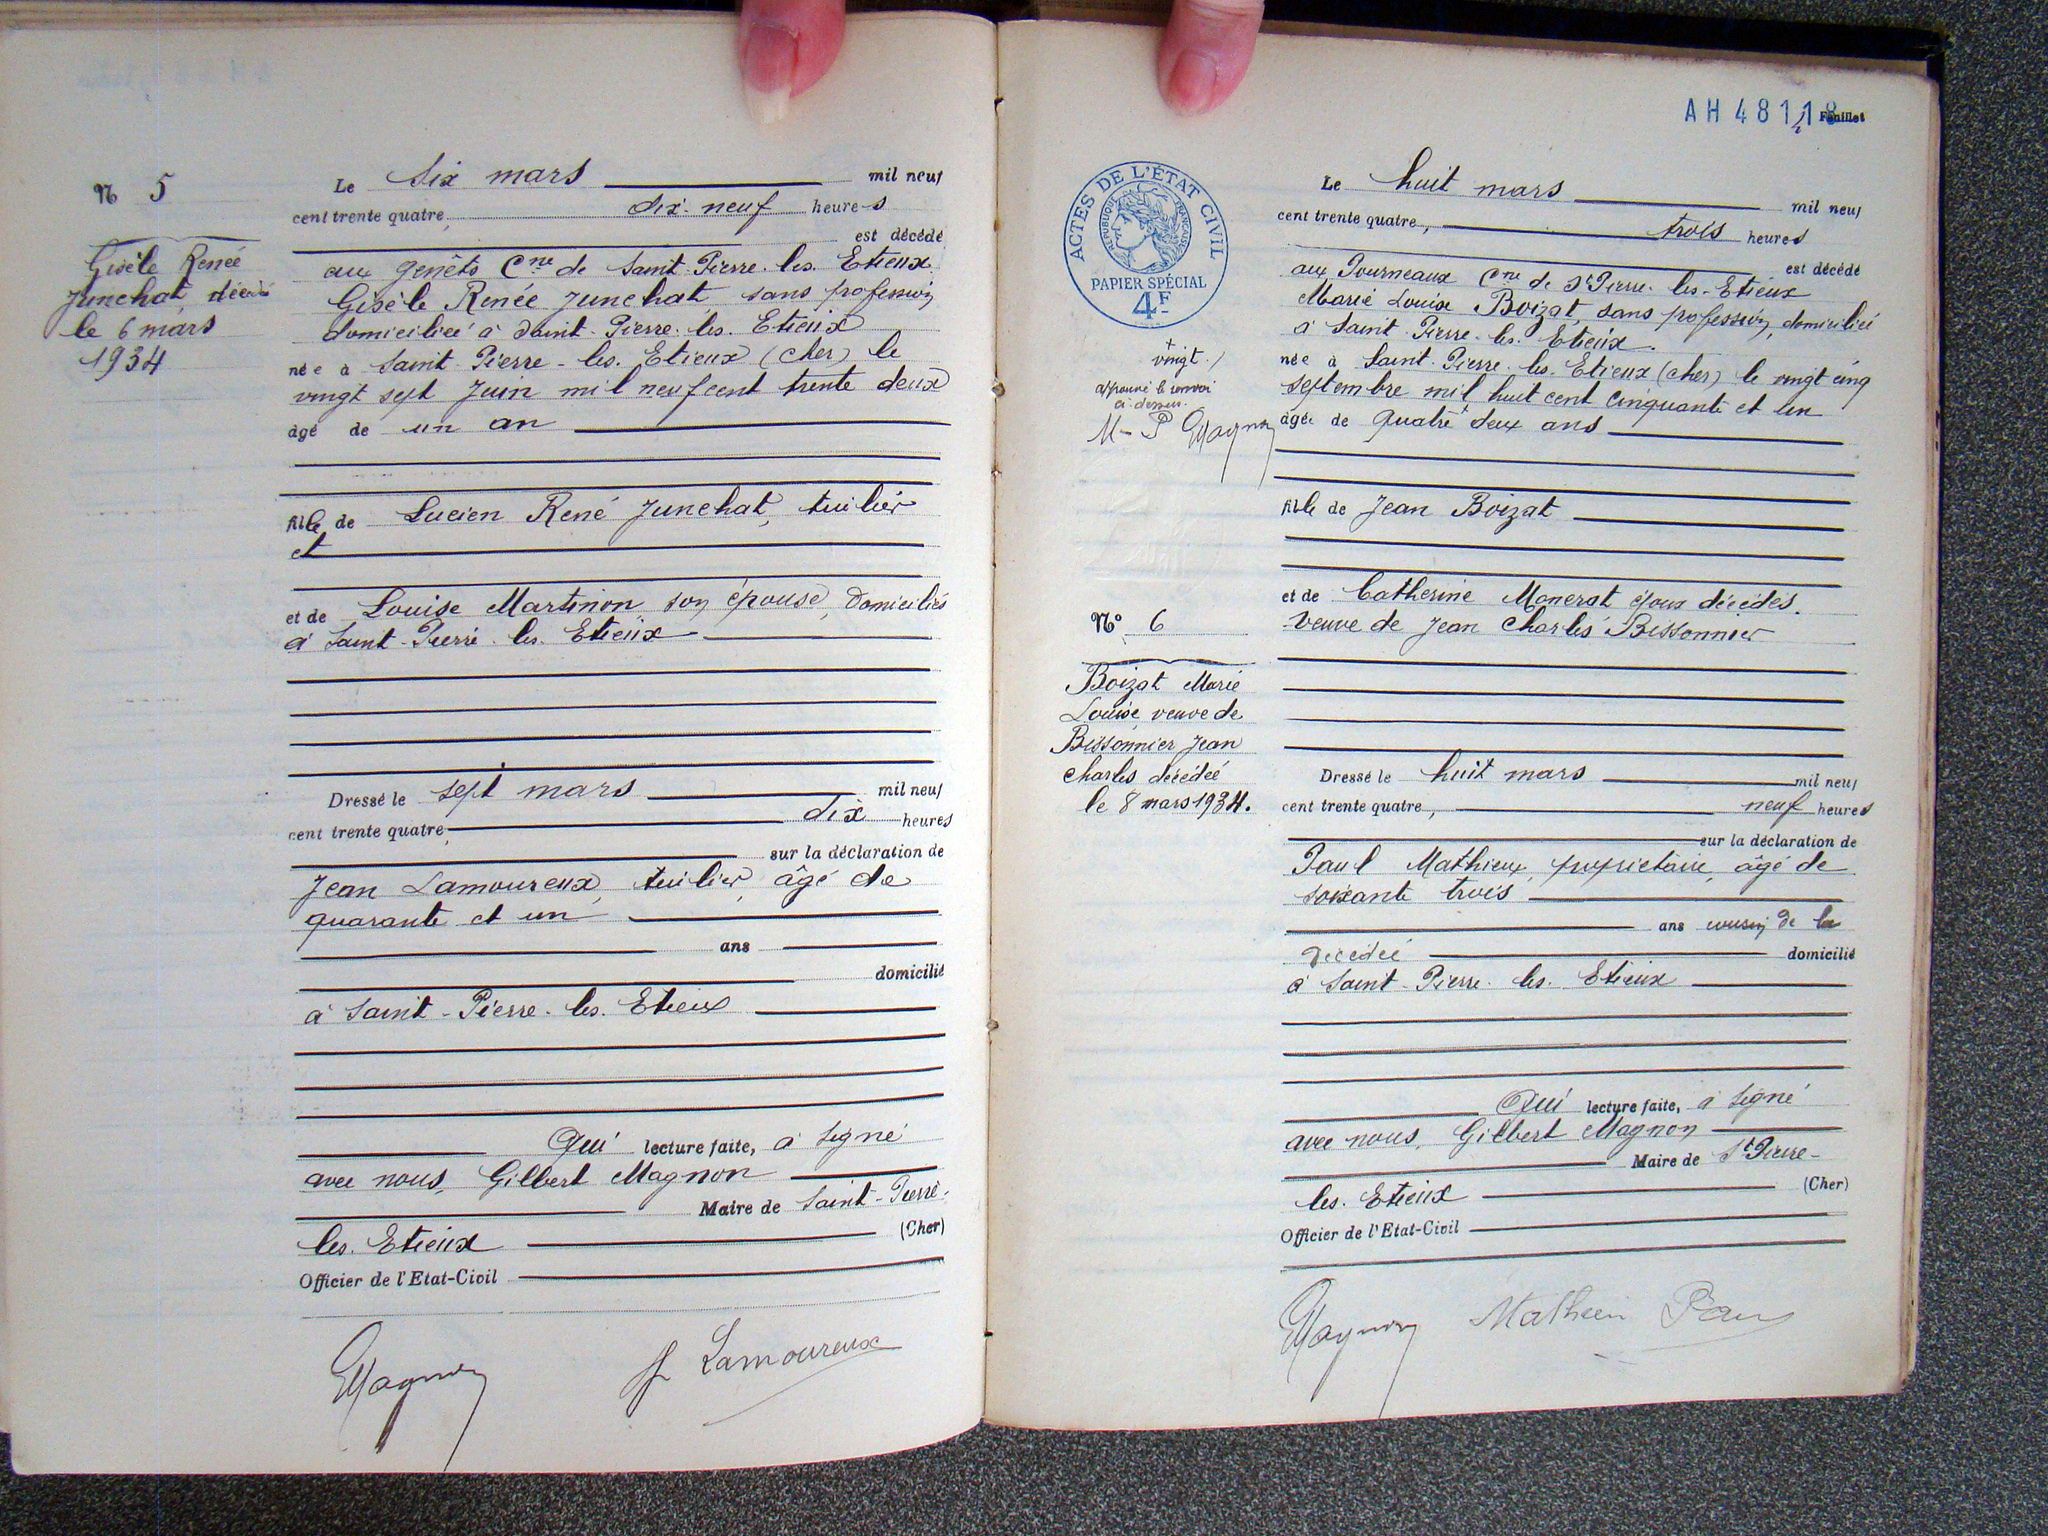 N 5
Gisèle Renée
Junchat décédée
le 6 mars
1934
Le six mars mil neuf
cent trente quatre, dix-neuf heures
est décédé
aux Genêts Cne de Saint-Pierre-les-Etieux
Gisèle Renée Junchat, sans profession,
domiciliée à Saint-Pierre-les-Etieux
née à Saint-Pierre-les-Etieux (Cher) le
vingt sept Juin mil neuf cent trente deux
âgé de un an
fille de Lucien René Junchat, tuilier
et
et de Louise Martinon son épouse, domiciliés
à Saint-Pierre-les-Etieux
Dressé le sept mars mil neuf
cent trente quatre, dix heures
sur la déclaration de
Jean Lamoureux, tuilier, âgé de
quarante et un
ans
domicilié
à Saint-Pierre-les-Etieux
Qui lecture faite, a signé
avec nous, Gilbert Magnon
Maire de Saint-Pierre-
les-Etieux (Cher)
Officier de l'Etat-Civil
Magnon J Lamoureux
AH 481 Feuillet
ACTES DE L'ÉTAT CIVIL
RÉPUBLIQUE FRANÇAISE
PAPIER SPÉCIAL
4F
+
vingt /
approuvé le renvoi
ci-dessus.
M- P Magnon
N° 6
Boizat Marie
Louise veuve de
Bissonnier Jean
Charles décédée
le 8 mars 1934.
Le huit mars mil neuf
cent trente quatre, trois heures
est décédé
aux Fourneaux Cne de St Pierre-les-Etieux
Marie Louise Boizat, sans profession, domiciliée
à Saint-Pierre-les-Etieux.
née à Saint-Pierre-les-Etieux (Cher) le vingt cinq
septembre mil huit cent cinquante et un
âgée de quatre + deux ans
fille de Jean Boizat
et de Catherine Monerat époux décédés.
Veuve de Jean Charles Bissonnier
Dressé le huit mars mil neuf
cent trente quatre, neuf heures
sur la déclaration de
Paul Mathieu, propriétaire, âgé de
soixante trois
ans cousin de la
décédée domicilié
à Saint-Pierre-les-Etieux
Qui lecture faite, a signé
avec nous, Gilbert Magnon
Maire de St Pierre-
les-Etieux (Cher)
Officier de l'Etat-Civil
Magnon Mathieu Paul